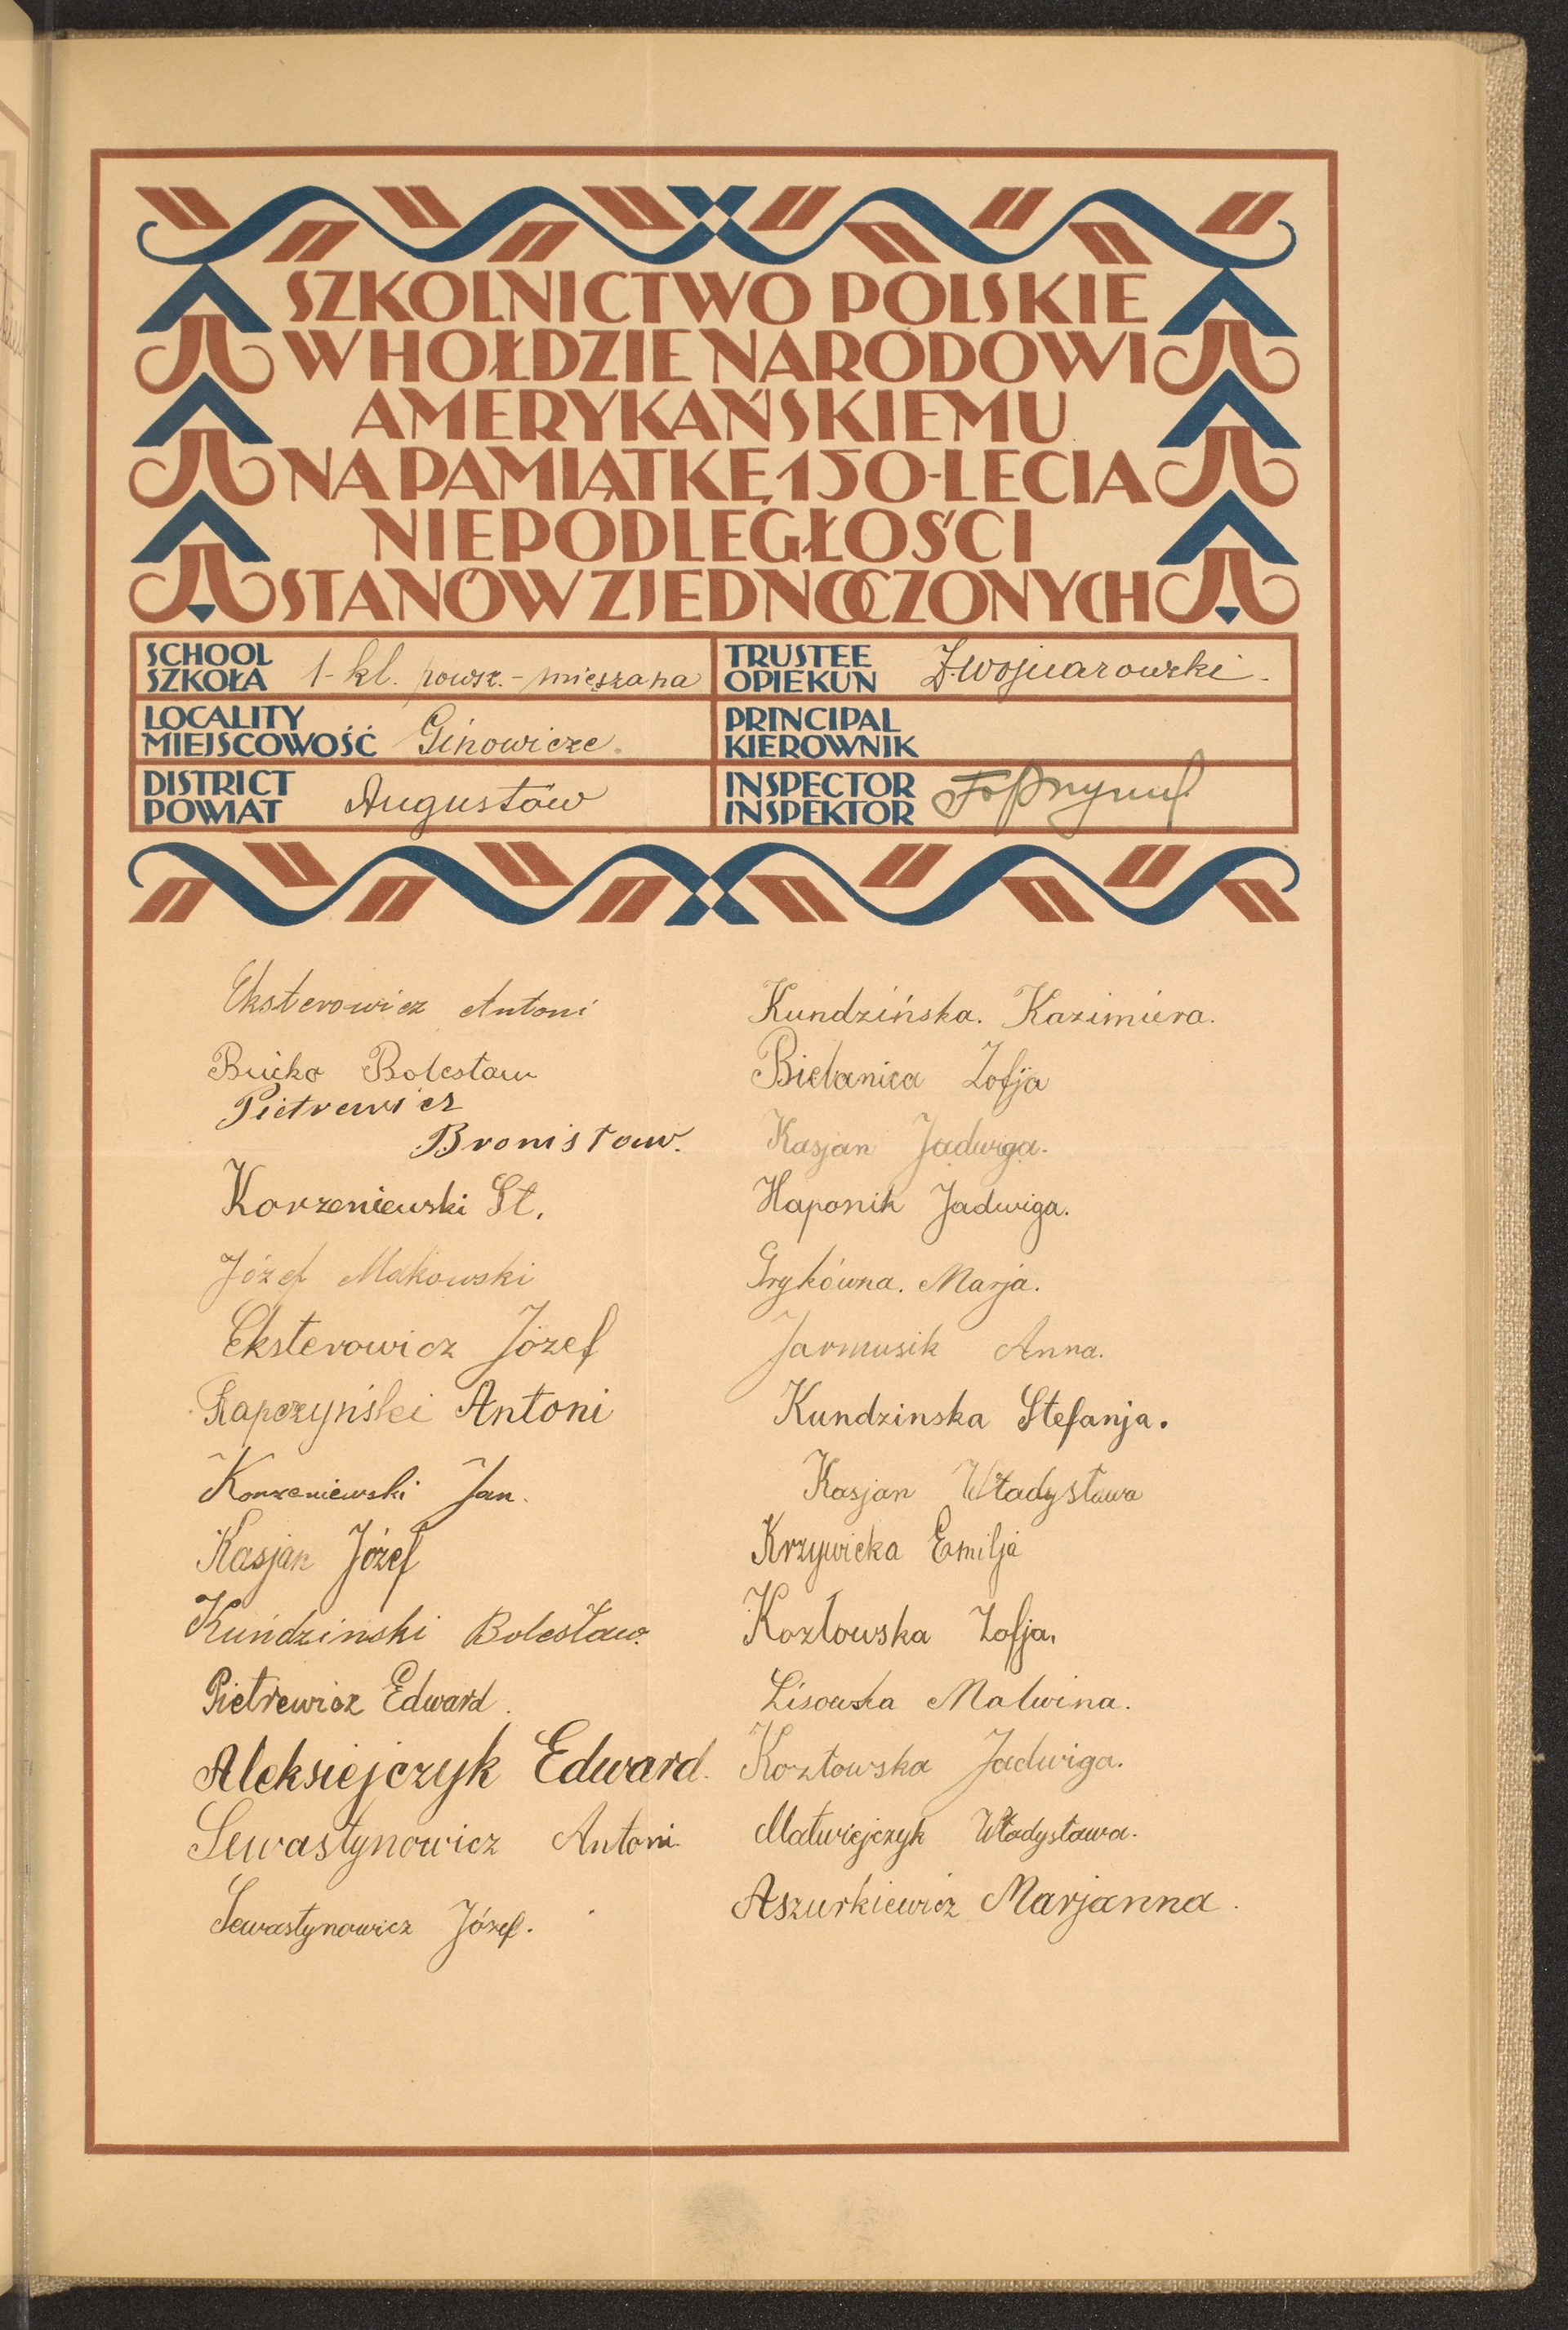 SZKOLNICTWO POLSKIE
W HOŁDZIE NARODOWI
AMERYKAŃSKIEMU
NA PAMIĄTKĘ 150-LECIA
NIEPODLEGŁOŚCI
STANÓW ZJEDNOCZONYCH
SCHOOL
SZKOŁA 1-kl. powsz.-mieszana
TRUSTEE
OPIEKUN
LOCALITY
MIEJSCOWOŚĆ Ginowicze.
PRINCIPAL
KIEROWNIK
DISTRICT
POWIAT Augustów
INSPECTOR
INSPEKTOR
Eksterowicz Antoni
Bućko Bolesław
Pietrewicz
Bronisław.
Korzeniewski St.
Józef Makowski
Eksterowicz Józef
Rapczyński Antoni
Korzeniewski Jan.
Kasjan Józef
Kundzinski Bolesław.
Pietrewicz Edward.
Aleksiejczyk Edward.
Sewastynowicz Antoni.
Sewastynowicz Józef.
Kundzińska. Kazimiera.
Bielanica Zofja
Kasjan Jadwiga.
Haponik Jadwiga.
Grykówna. Marja.
Jarmusik Anna.
Kundzinska Stefanja.
Kasjan Władysława
Krzywicka Emilja
Kozłowska Zofja.
Lisowska Malwina.
Kozłowska Jadwiga.
Matwiejczyk Władysława.
Aszurkiewicz Marjanna.